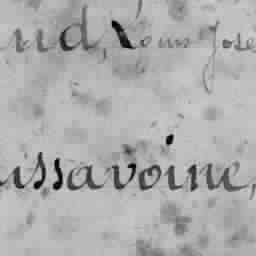 und, Louis Jose
issavoine,